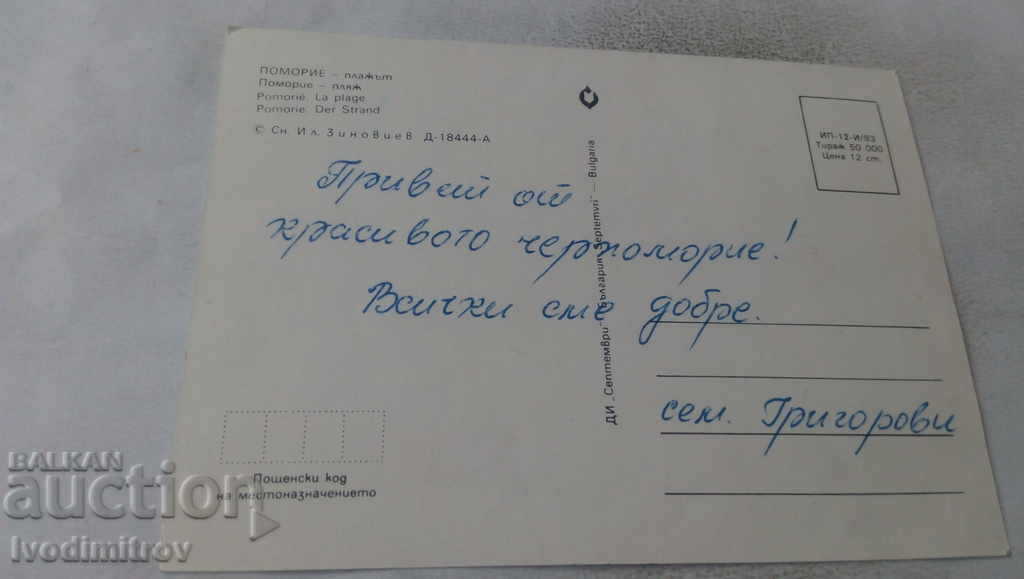 ПОМОРИЕ – плажът
Поморие – пляж
Pomorié. La plage
Pomorie. Der Strand
© Сн. Ил. Зиновиев Д-18444-А
ИП-12-И/83
Тираж 50 000
Цена 12 ст.
Привет от
красивото черноморие!
Всички сме добре.
сем. Григорови
ДИ „Септември“ България „Septemvri“ — Bulgaria
Пощенски код
на местоназначението
BALKAN
auction
Ivodimitrov